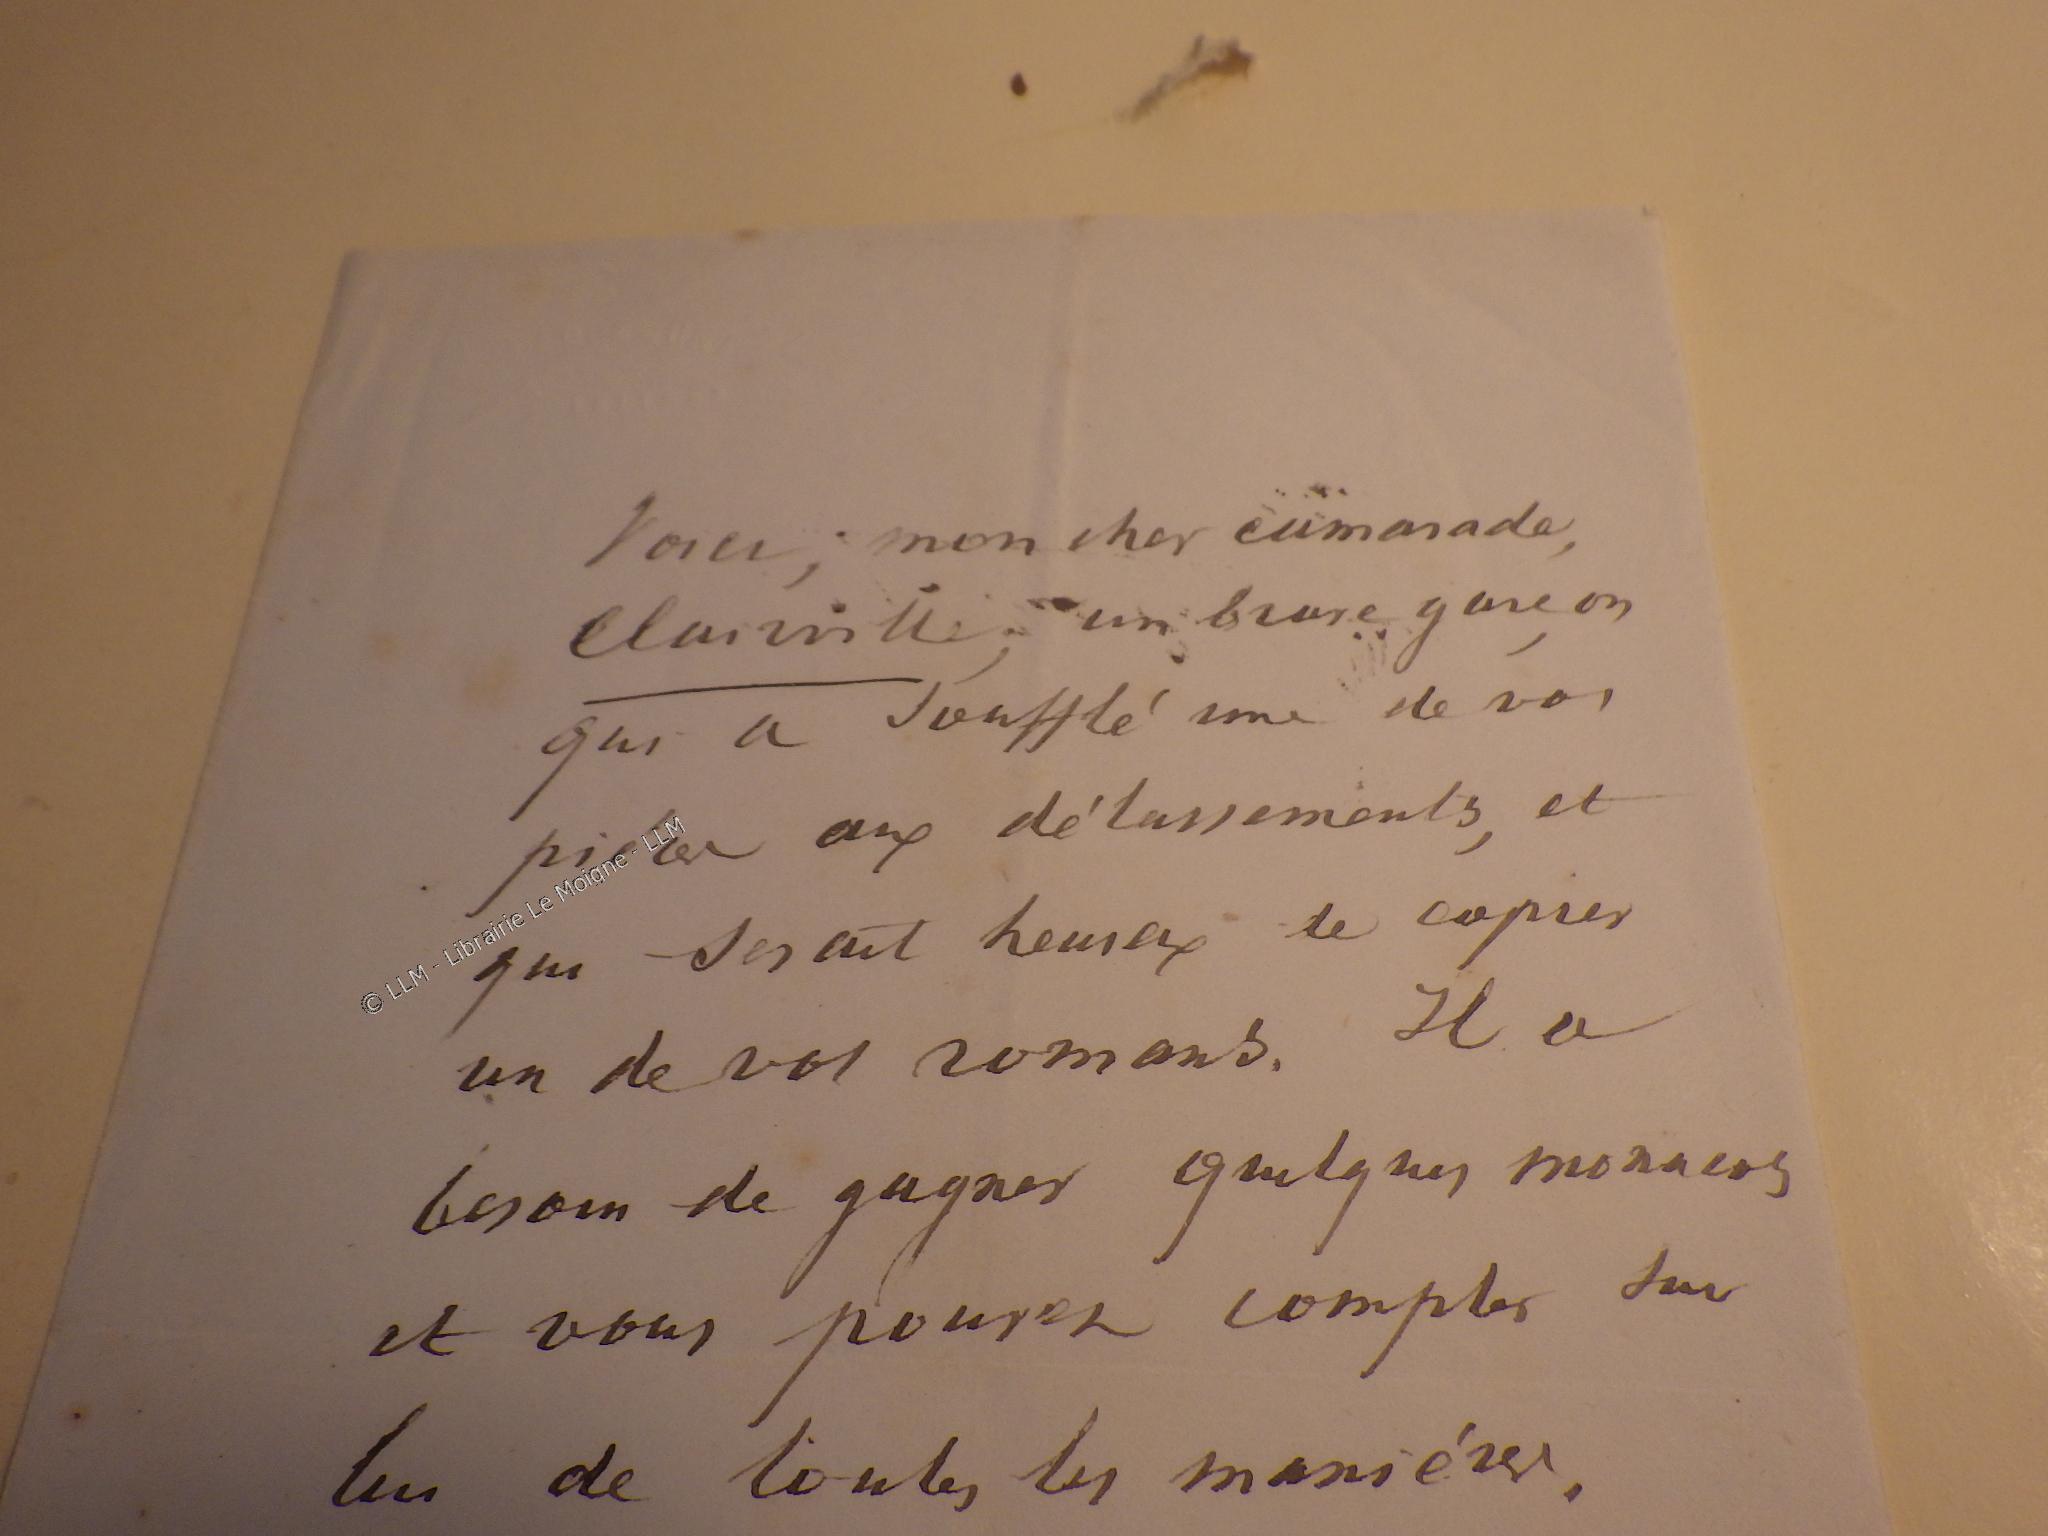 Voici, mon cher camarade,
Clairville, un brave garçon
qui a soufflé une de vos
pièces aux délassements, et
qui serait heureux de copier
un de vos romans. Il a
besoin de gagner quelques monacos
et vous pouvez compter sur
lui de toutes les manières.
© LLM - Librairie Le Moigne - LLM